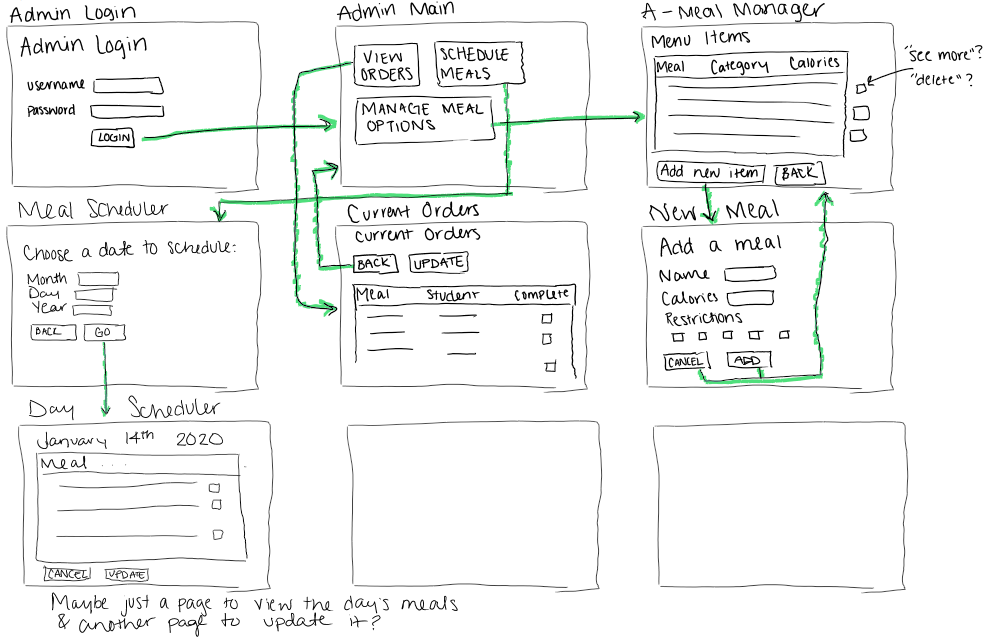 Admin Login
Admin Login
username
password
LOGIN
Admin Main
VIEW
ORDERS
SCHEDULE
MEALS
MANAGE MEAL
OPTIONS
A-Meal Manager
Menu Items
Meal Category Calories
"see more"?
"delete"?
Add new item
BACK
Meal Scheduler
Choose a date to schedule:
Month
Day
Year
BACK
GO
Current Orders
Current Orders
BACK
UPDATE
Meal Student Complete
New Meal
Add a meal
Name
Calories
Restrictions
CANCEL
ADD
Day Scheduler
January 14th 2020
Meal ....
CANCEL
UPDATE
Maybe just a page to view the day's meals
& another page to update it?